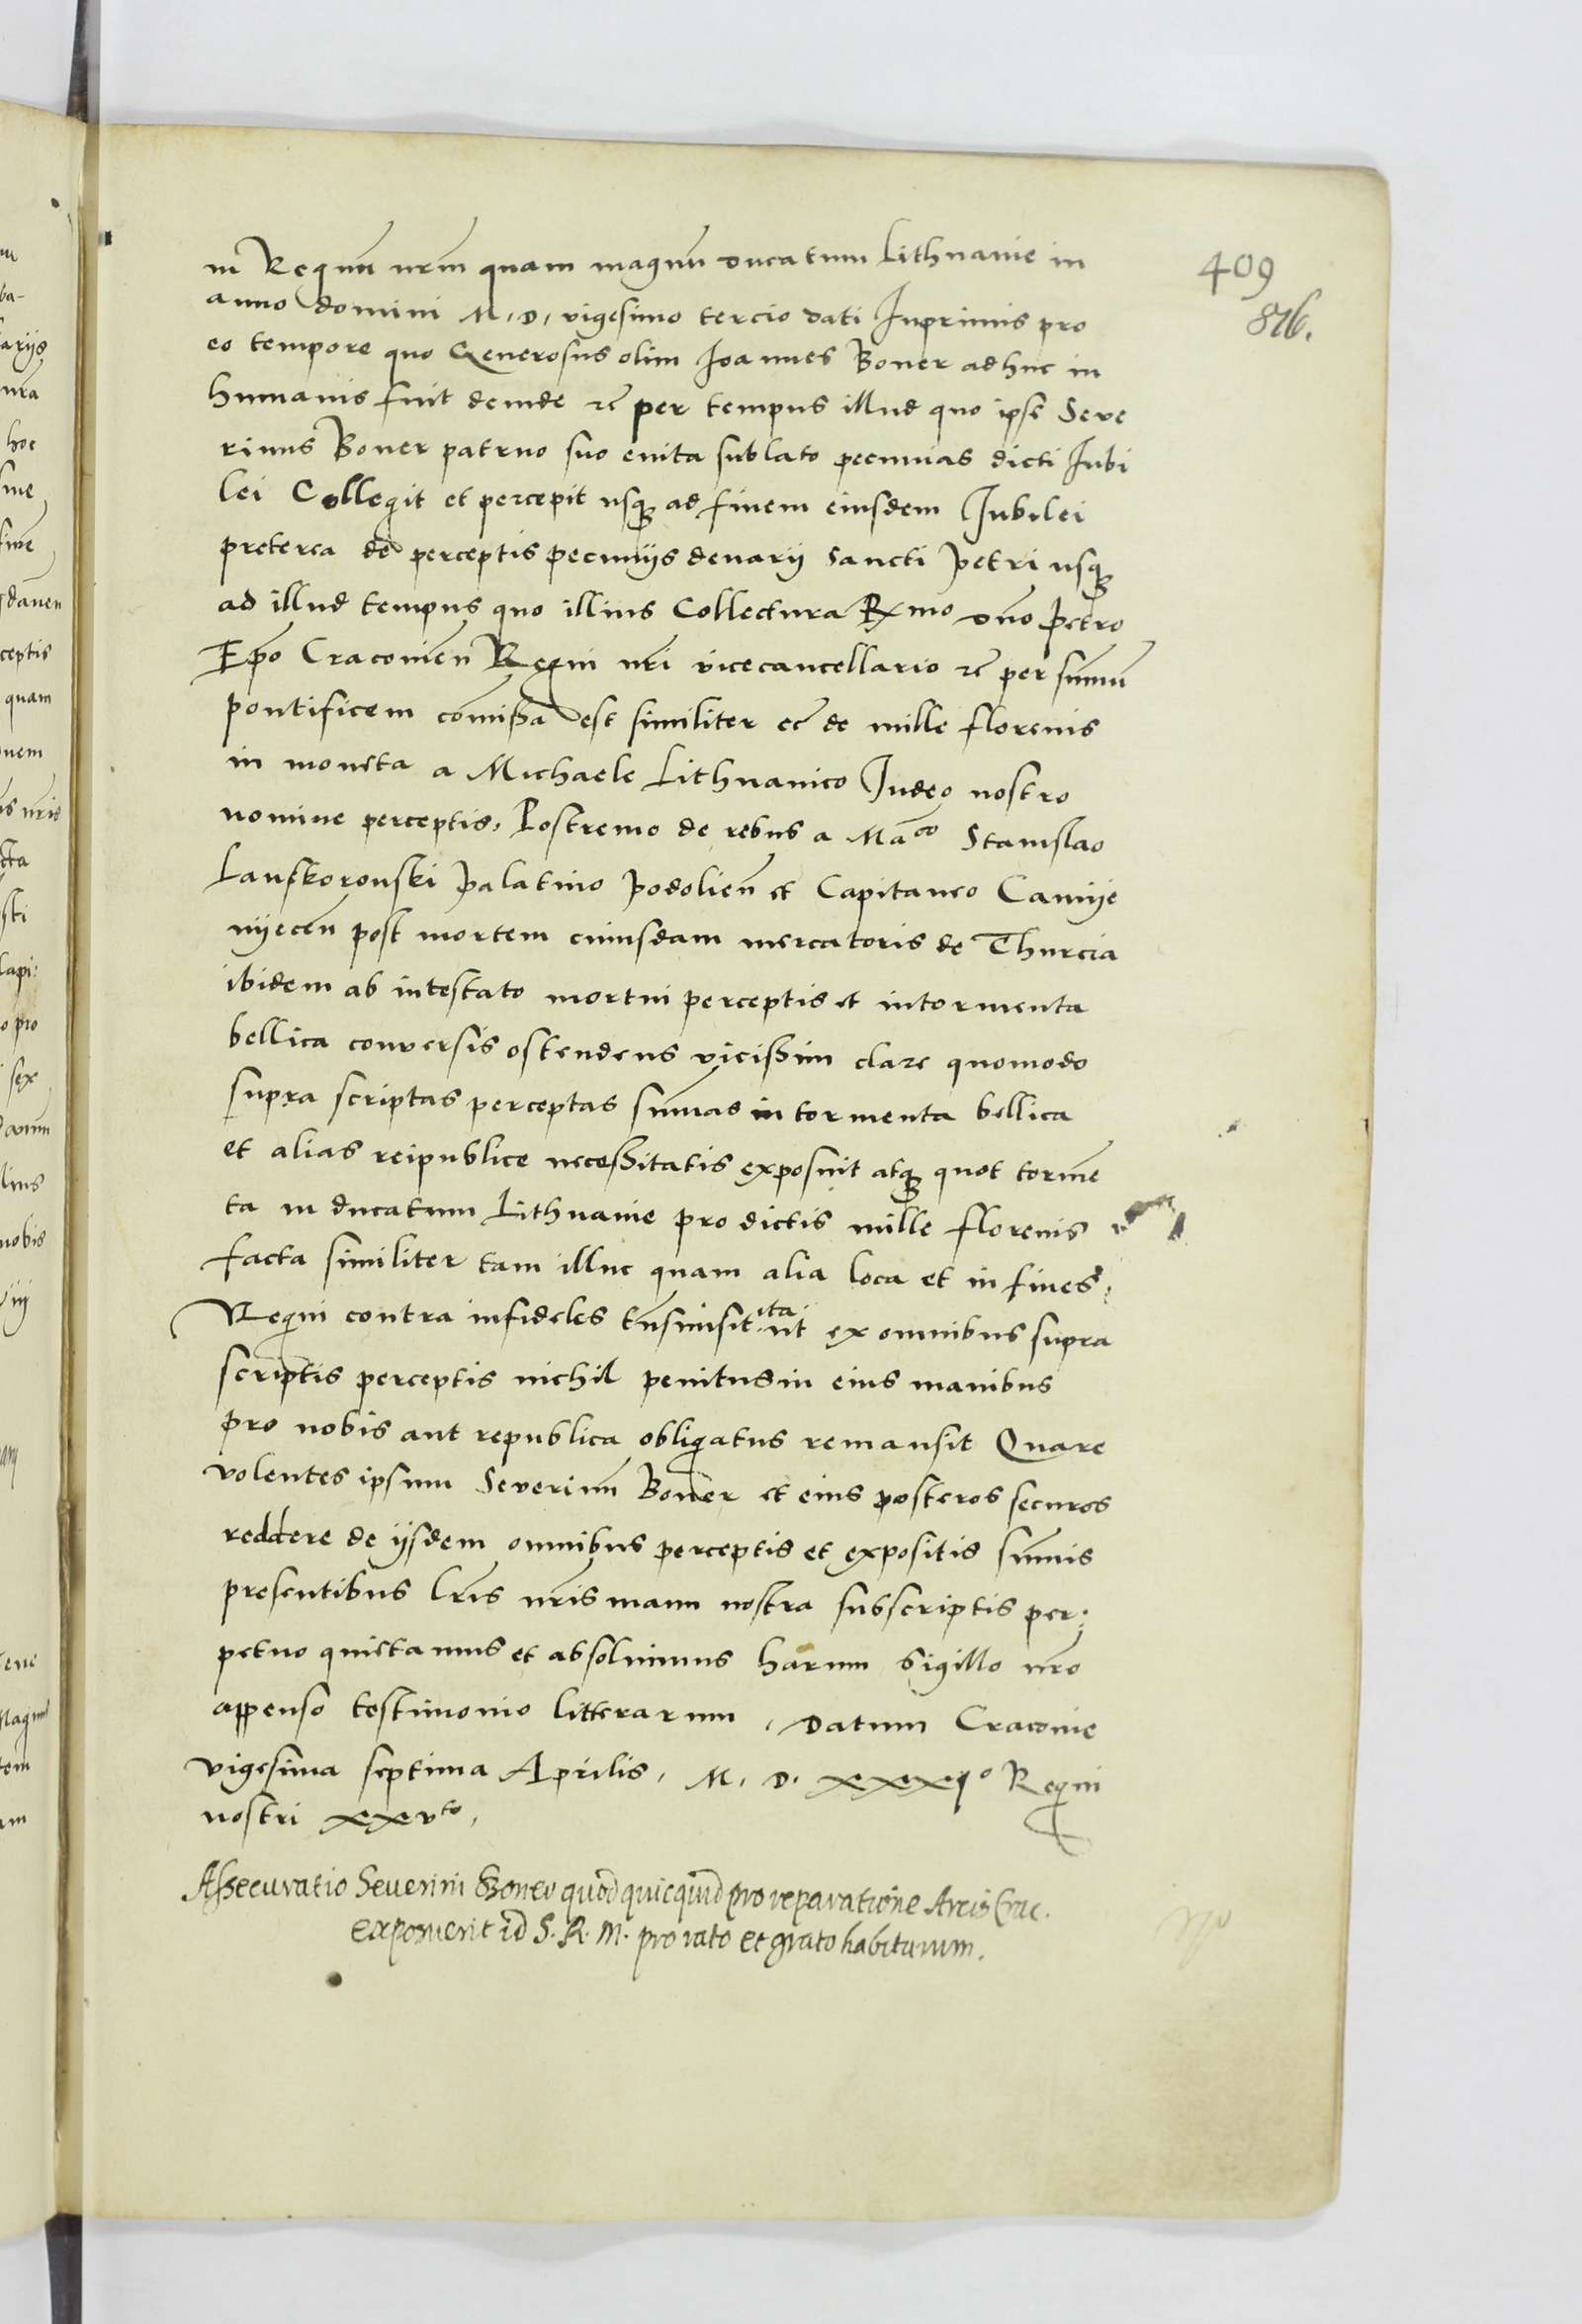 409
816.
in Regnu͂ nr͂m quam magnu͂ ducatum Lithuanie in
anno domini M. D. vigesimo tercio dati Inprimis pro
eo tempore quo Generosus olim Joannes Boner adhuc in
humanis fuit deinde et per tempus illud quo ipse Seve
rinus Boner patruo suo e vita sublato pecunias dicti Jubi
lei Collegit et percepit usq̃ ad finem eiusdem Jubilei
preterea de perceptis pecunijs denarij Sancti Petri usq̃
ad illud tempus quo illius Collectura Rmo dn͂o Petro
Ep͂o Cracovien͂ Regni nr͂i vicecancellario et per sum͂u͂
pontificem com͂issa est similiter et de mille florenis
in moneta a Michaele Lithuanico Judeo nostro
nomine perceptis. Postremo de rebus a Ma͂co Stanislao
Lanskoronski Palatino Podolien͂ et Capitaneo Camije
nijecen͂ post mortem cuiusdam mercatoris de Thurcia
ibidem ab intestato mortui perceptis et in tormenta
bellica conversis ostendens vicissim clare quomodo
supra scriptas perceptas sum͂as in tormenta bellica
et alias reipublice necessitatis exposuit atq̃ quot torme͂
ta in ducatum Lithuanie pro dictis mille florenis
facta similiter tam illuc quam alia loca et in fines
Regni contra infideles tr͂nsmisit ita ut ex omnibus supra
scriptis perceptis nichil penitus in eius manibus
pro nobis aut republica obligatus remansit Quare
volentes ipsum Severinu͂ Boner et eius posteros securos
reddere de ijsdem omnibus perceptis et expositis sum͂is
presentibus lr͂is nr͂is manu nostra subscriptis per:
petuo quietamus et absolvimus harum Sigillo nr͂o
appenso testimonio litterarum. Datum Cracovie
vigesima septima Aprilis. M. D. xxxjo Regni
nostri xxvto.
Assecuratio Severini Boner quod quicquid pro reparatione Arcis Crac.
exposuerit id S. R. M. pro rato et grato habiturum.